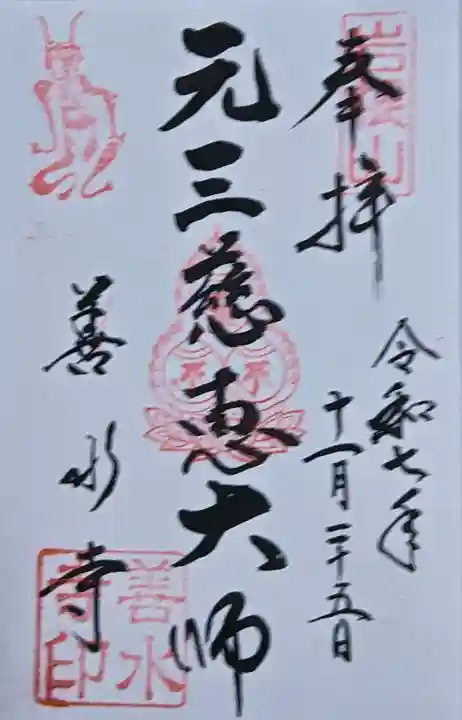 奉拝
令和七年
十一月二十五日
元三慈恵大師
善水寺
岩根山
善水
寺印